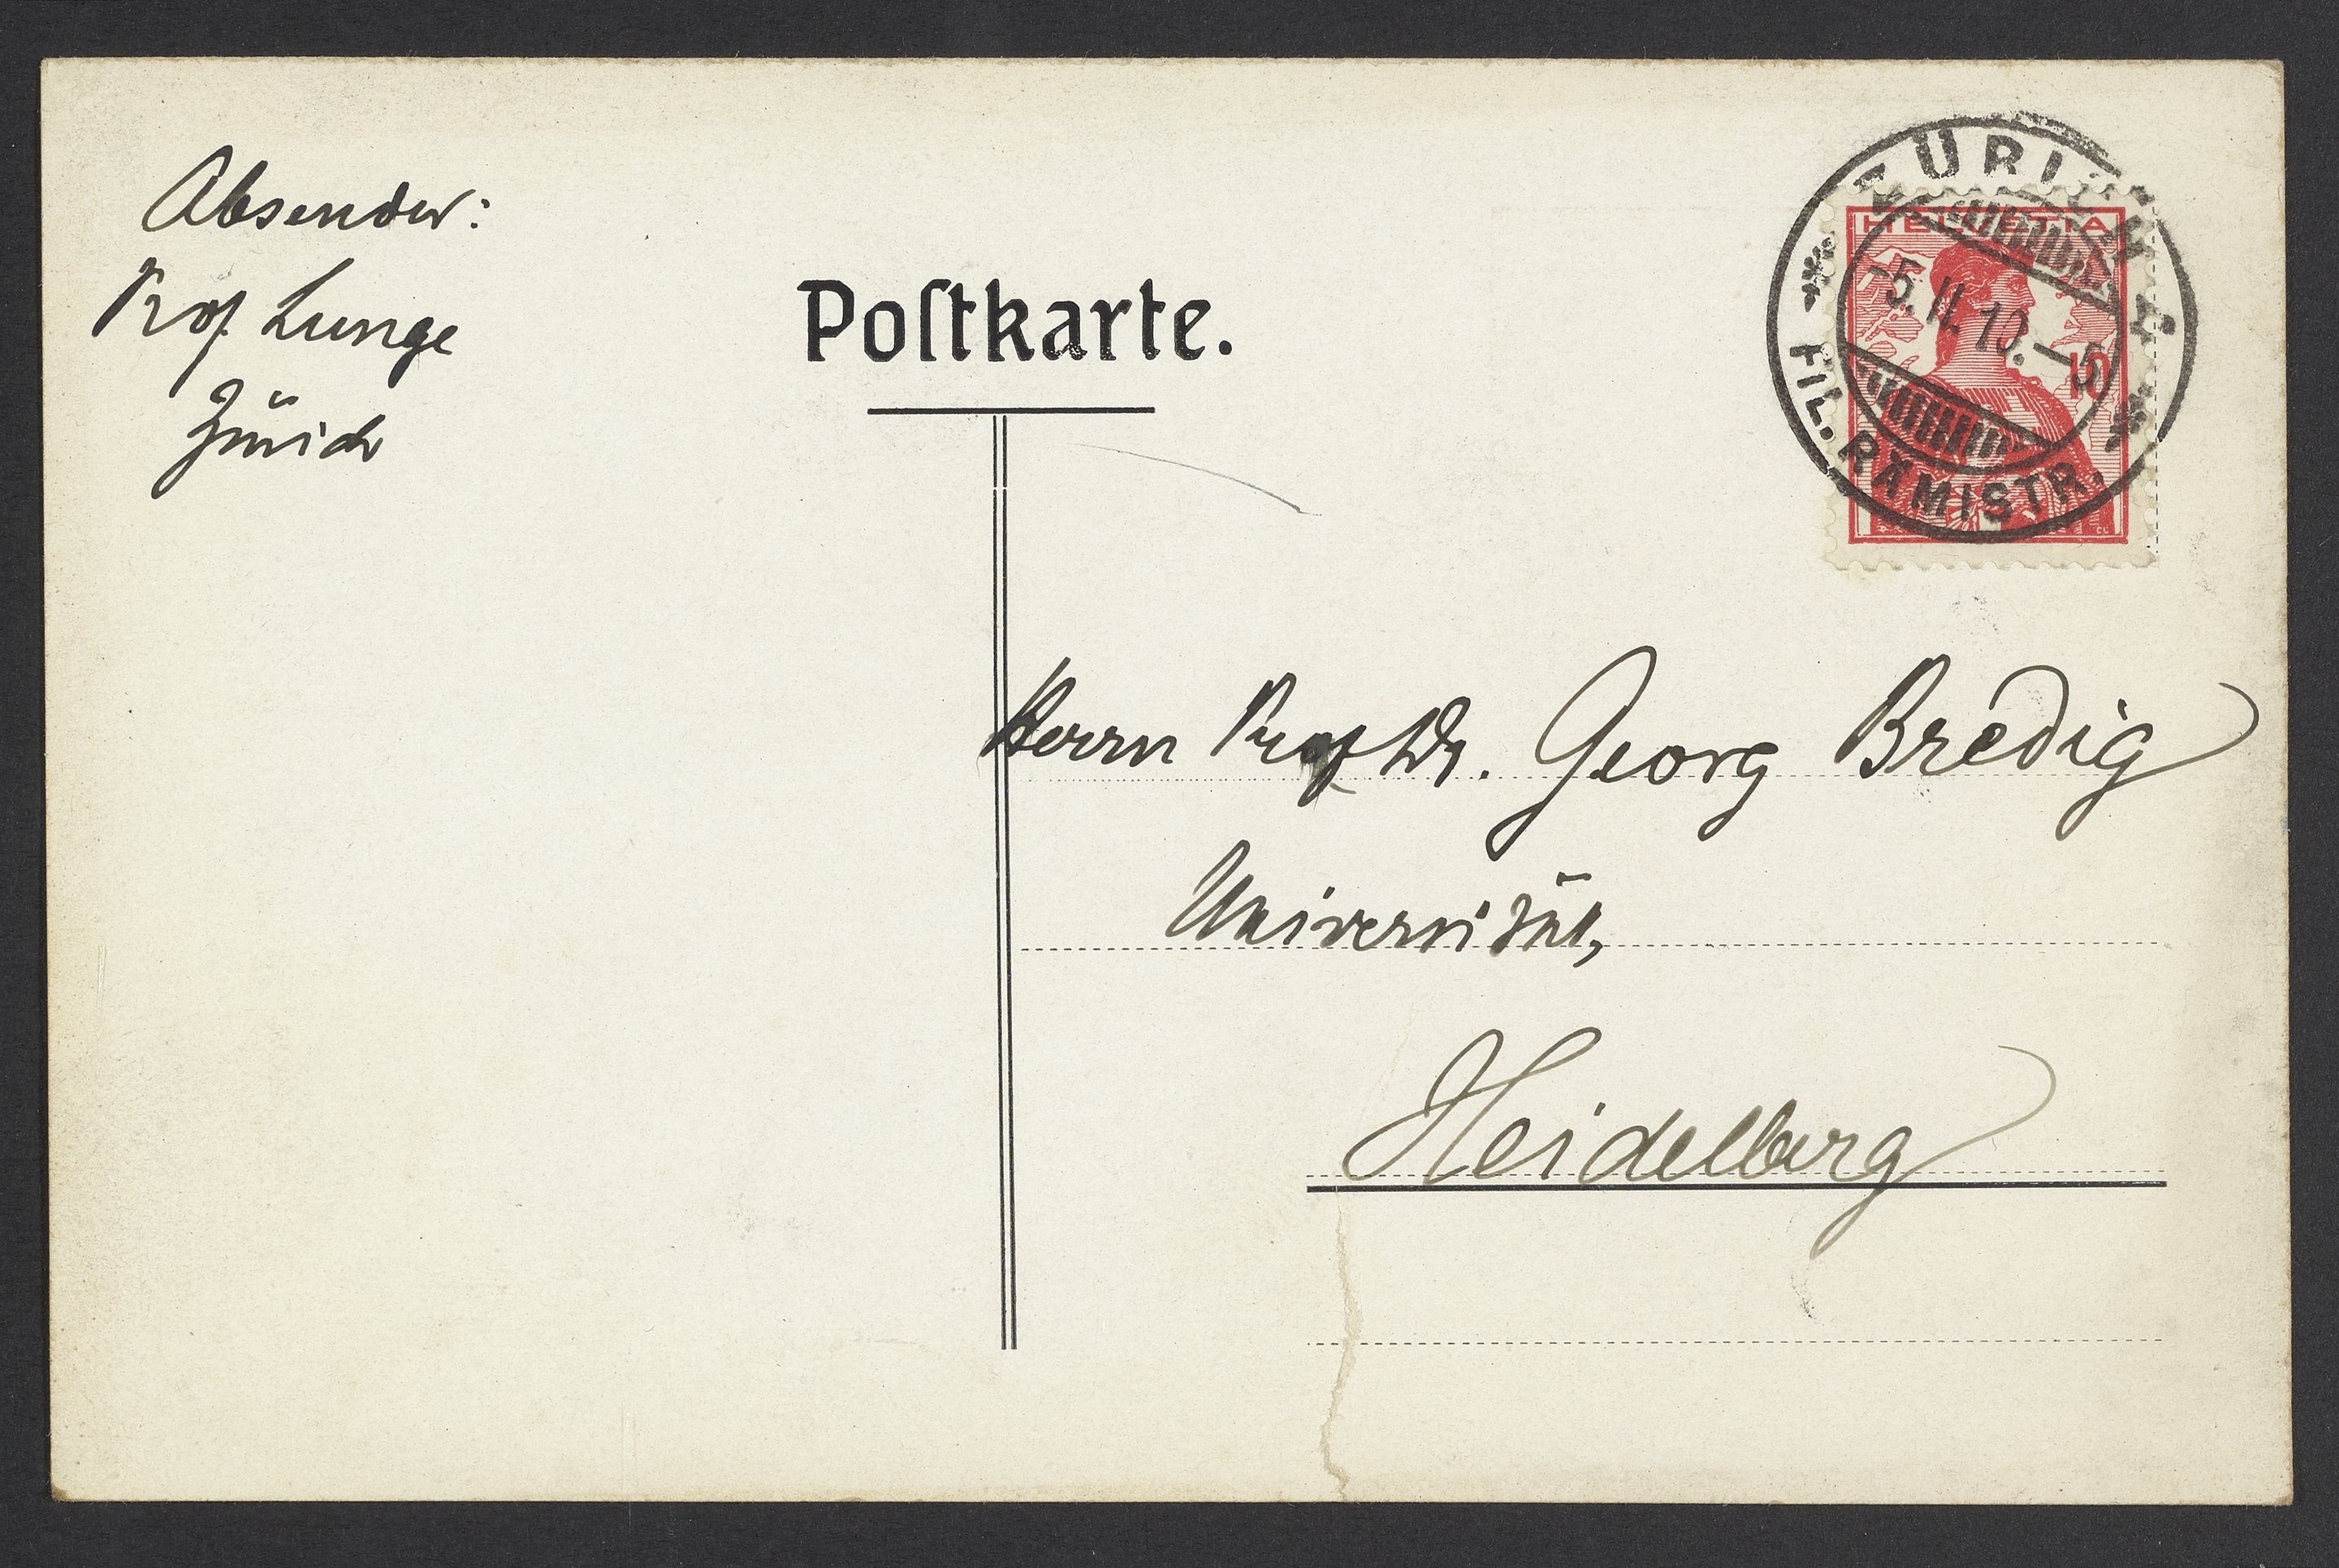 Absender:
Prof. Lunge
Zürich
Poſtkarte.
ZÜRICH
HELVETIA
5.II.10.–5
10
FIL. RÄMISTR.
Herrn Prof Dr. Georg Bredig
Universität,
Heidelberg